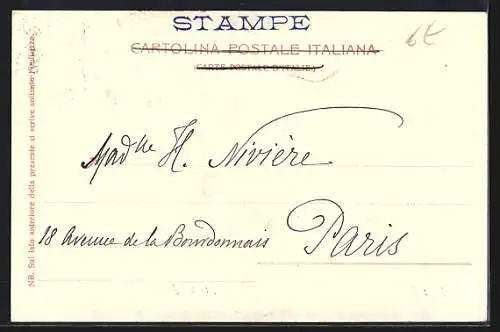 STAMPE
CARTOLINA POSTALE ITALIANA
(CARTE POSTALE D'ITALIE)
6€
Madlle H. Nivière
18 Avenue de la Bourdonnais Paris
NB. Sul lato anteriore della presente si scrive soltanto l'indirizzo